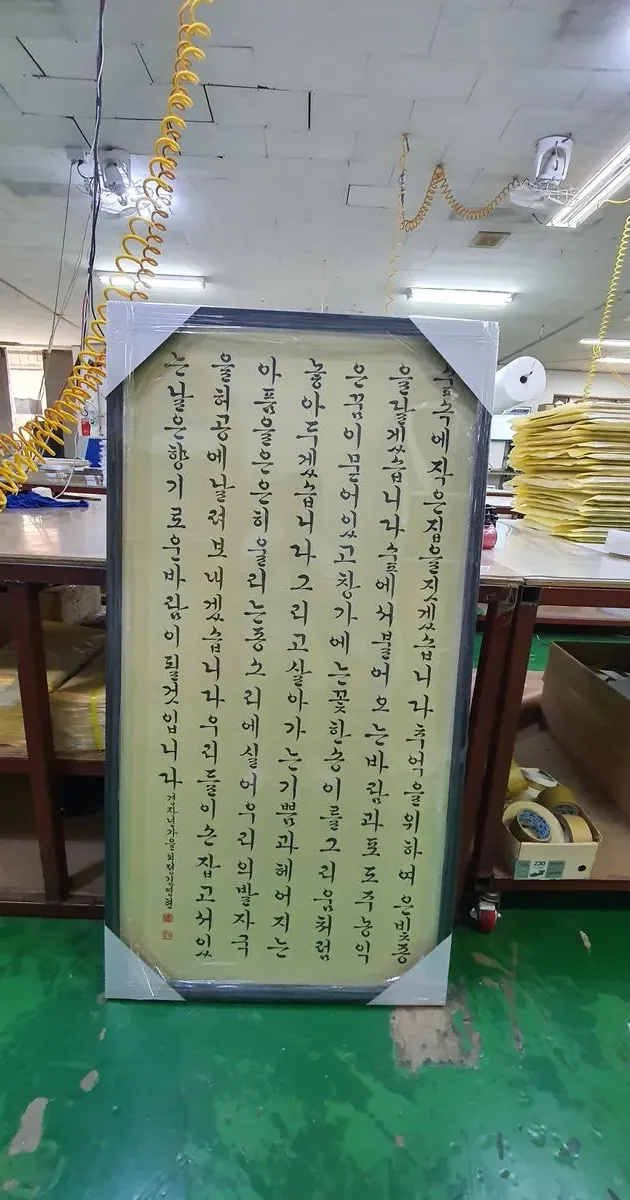 숲속에작은집을짓겠습니다추억을위하여은빛종
을달겠습니다숲에서불어오는바람과포도주농익
은꿈이묻어있고창가에는꽃한송이를그리움처럼
놓아두겠습니다그리고살아가는기쁨과헤어지는
아픔을은은히울리는종소리에실어우리의발자국
을허공에날려보내겠습니다우리들이손잡고서있
는날은향기로운바람이될것입니다
경자년가을
230